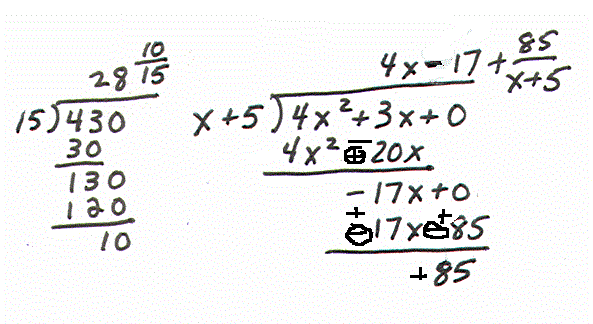 28 10/15
15)430
30
130
120
10
4x - 17 + 85/(x+5)
x+5)4x²+3x+0
4x² ⊕ 20x
-17x+0
+ +
⊖17x⊖85
+85